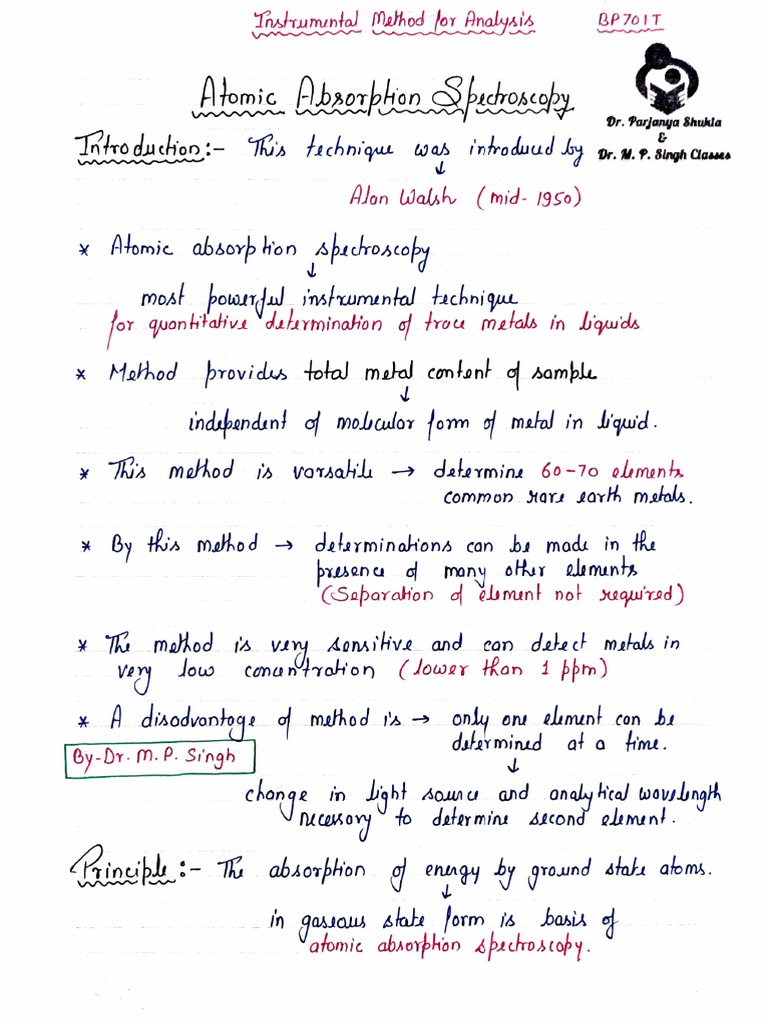 Instrumental Method for Analysis BP701T
Atomic Absorption Spectroscopy
Dr. Parjanya Shukla
&
Dr. M. P. Singh Classes
Introduction:- This technique was introduced by
↓
Alan Walsh (mid-1950)
* Atomic absorption spectroscopy
↓
most powerful instrumental technique
for quantitative determination of trace metals in liquids
* Method provides total metal content of sample
↓
independent of molecular form of metal in liquid.
* This method is varsatile → determine 60-70 elements
common rare earth metals.
* By this method → determinations can be made in the
presence of many other elements
(Separation of element not required)
* The method is very sensitive and can detect metals in
very low concntration (lower than 1 ppm)
* A disadvantage of method is → only one element can be
determined at a time.
By-Dr. M. P. Singh
↓
change in light source and analytical wavelength
necessory to determine second element.
Principle:- The absorption of energy by ground state atoms.
↓
in gaseous state form is basis of
atomic absorption spectroscopy.